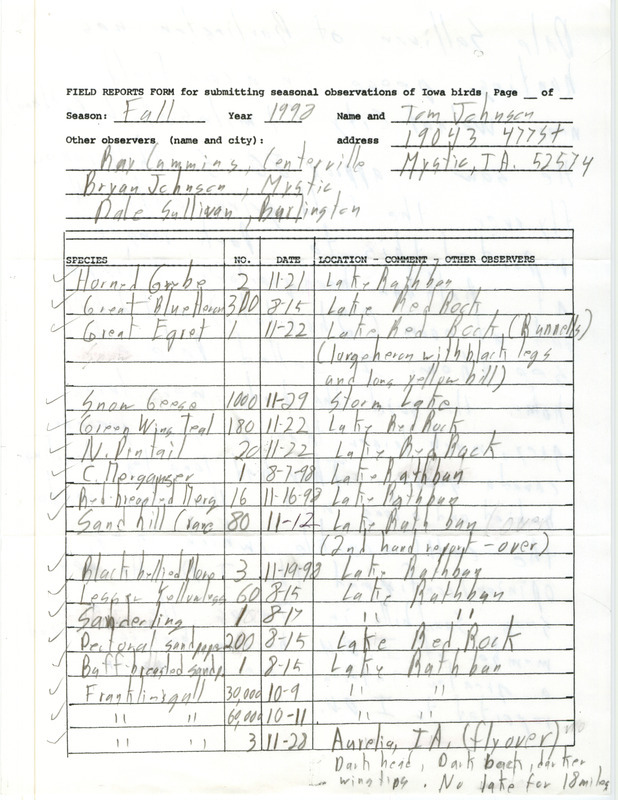 FIELD REPORTS FORM for submitting seasonal observations of Iowa birds Page __ of __
Season: Fall Year 1998 Name and Tom Johnson
Other observers (name and city): address 19043 477St
Ray Cummins, Centerville Mystic, IA. 52574
Bryan Johnson, Mystic
Dale Sullivan, Burlington
SPECIES NO. DATE LOCATION - COMMENT - OTHER OBSERVERS
Horned Grebe 2 11-21 Lake Rathbun
Great Blue Heron 300 8-15 Lake Red Rock
Great Egret 1 11-22 Lake Red Rock (Runnells)
(large heron with black legs
and long yellow bill)
Snow Geese 1000 11-29 Storm Lake
Green Wing Teal 180 11-22 Lake Red Rock
N. Pintail 20 11-22 Lake Red Rock
C. Merganser 1 8-7-98 Lake Rathbun
Red-breasted Merg 16 11-16-98 Lake Rathbun
Sand hill Crane 80 11-12 Lake Rathbun
(2nd hand report - over)
Black bellied Plove. 3 11-19-98 Lake Rathbun
Lesser Yellowlegs 60 8-15 Lake Rathbun
Sanderling 1 8-17 " "
Pectoral Sandpiper 200 8-15 Lake Red Rock
Buff-breasted Sandp 1 8-15 Lake Rathbun
Franklin's gull 30,000 10-9 " "
" " 60,000 10-11 " "
" " 3 11-28 Aurelia, IA. (fly over) no
Dark head, Dark back, darker
wing tips. No lake for 18 miles